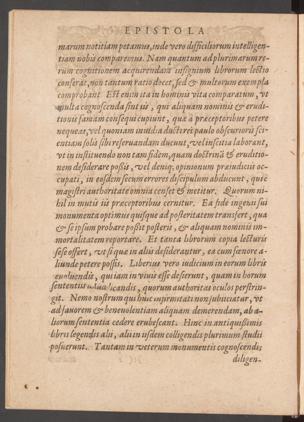 EPISTOLA
marum notitiam petamus, inde vero difficiliorum intelligen-
tiam nobis comparemus. Nam quantum ad plurimarum re-
rum cognitionem acquirendam insignium librorum lectio
conferat, non tantum ratio docet, sed & multorum exempla
comprobant. Est enim ita in hominis vita comparatum, vt
multa cognoscenda sint iis, qui aliquam nominis & eruditi-
tionis famam consequi cupiunt, quæ à præceptoribus petere
nequeat, vel quoniam inuidia ducti rei paulo obscurioris sci-
entiam solis sibi reseruandam ducunt, vel inscitia laborant,
vt in instituendo non tam fidem, quam doctrinã & eruditio-
nem desiderare possis, vel deniq; opinionum præiudiciis oc-
cupati, in eosdem secum errores discipulum abducunt, quæ
magistri authoritate omnia censet & metitur. Quorum ni-
hil in mutis iis præceptoribus cernitur. Ea fide ingenii sui
monumenta optimus quisque ad posteritatem transfert, qua
& se ipsum probare possit posteris, & aliquam nominis im-
mortalitatem reportare. Et tanta librorum copia lecturis
sese offert, vt si qua in aliis desiderantur, ea cum fœnore a-
liunde petere possis. Liberius vero iudicium in eorum libris
qui iam in viuis esse desierunt, quam in horum
sententiis quorum authoritas oculos perstrin-
git. Nemo nostrum qui huc imprimitati non subiiciatur, vt
ad fauorem & beneuolentiam aliquam demerendam, ab a-
liorum sententia cedere erubescant. Hinc in antiquissimis
libris legendis alii, alii in iisdem colligendis plurimum studii
posuerunt. Tantam in veterum monumentis cognoscendis
diligen-